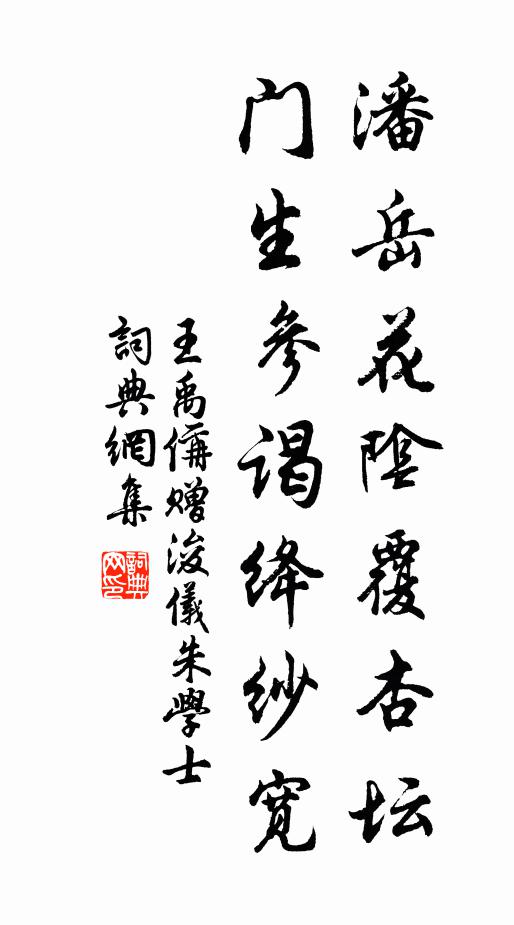 潘岳花陰覆杏坛
门生参谒绛纱宽
王禹偁赠浚儀朱學士
詞典網集
詞典网印